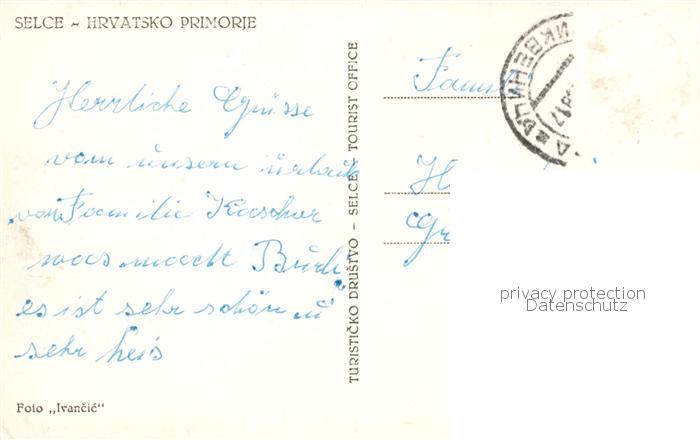 SELCE ~ HRVATSKO PRIMORJE
Herrliche Grüsse
vom unsern urlaub
von Familie Kascher
was macht
es ist sehr schön u
sehr heis
Foto „Ivančić“
TURISTIČKO DRUŠTVO – SELCE – TOURIST OFFICE
Fam
H
Gr
privacy protection
Datenschutz